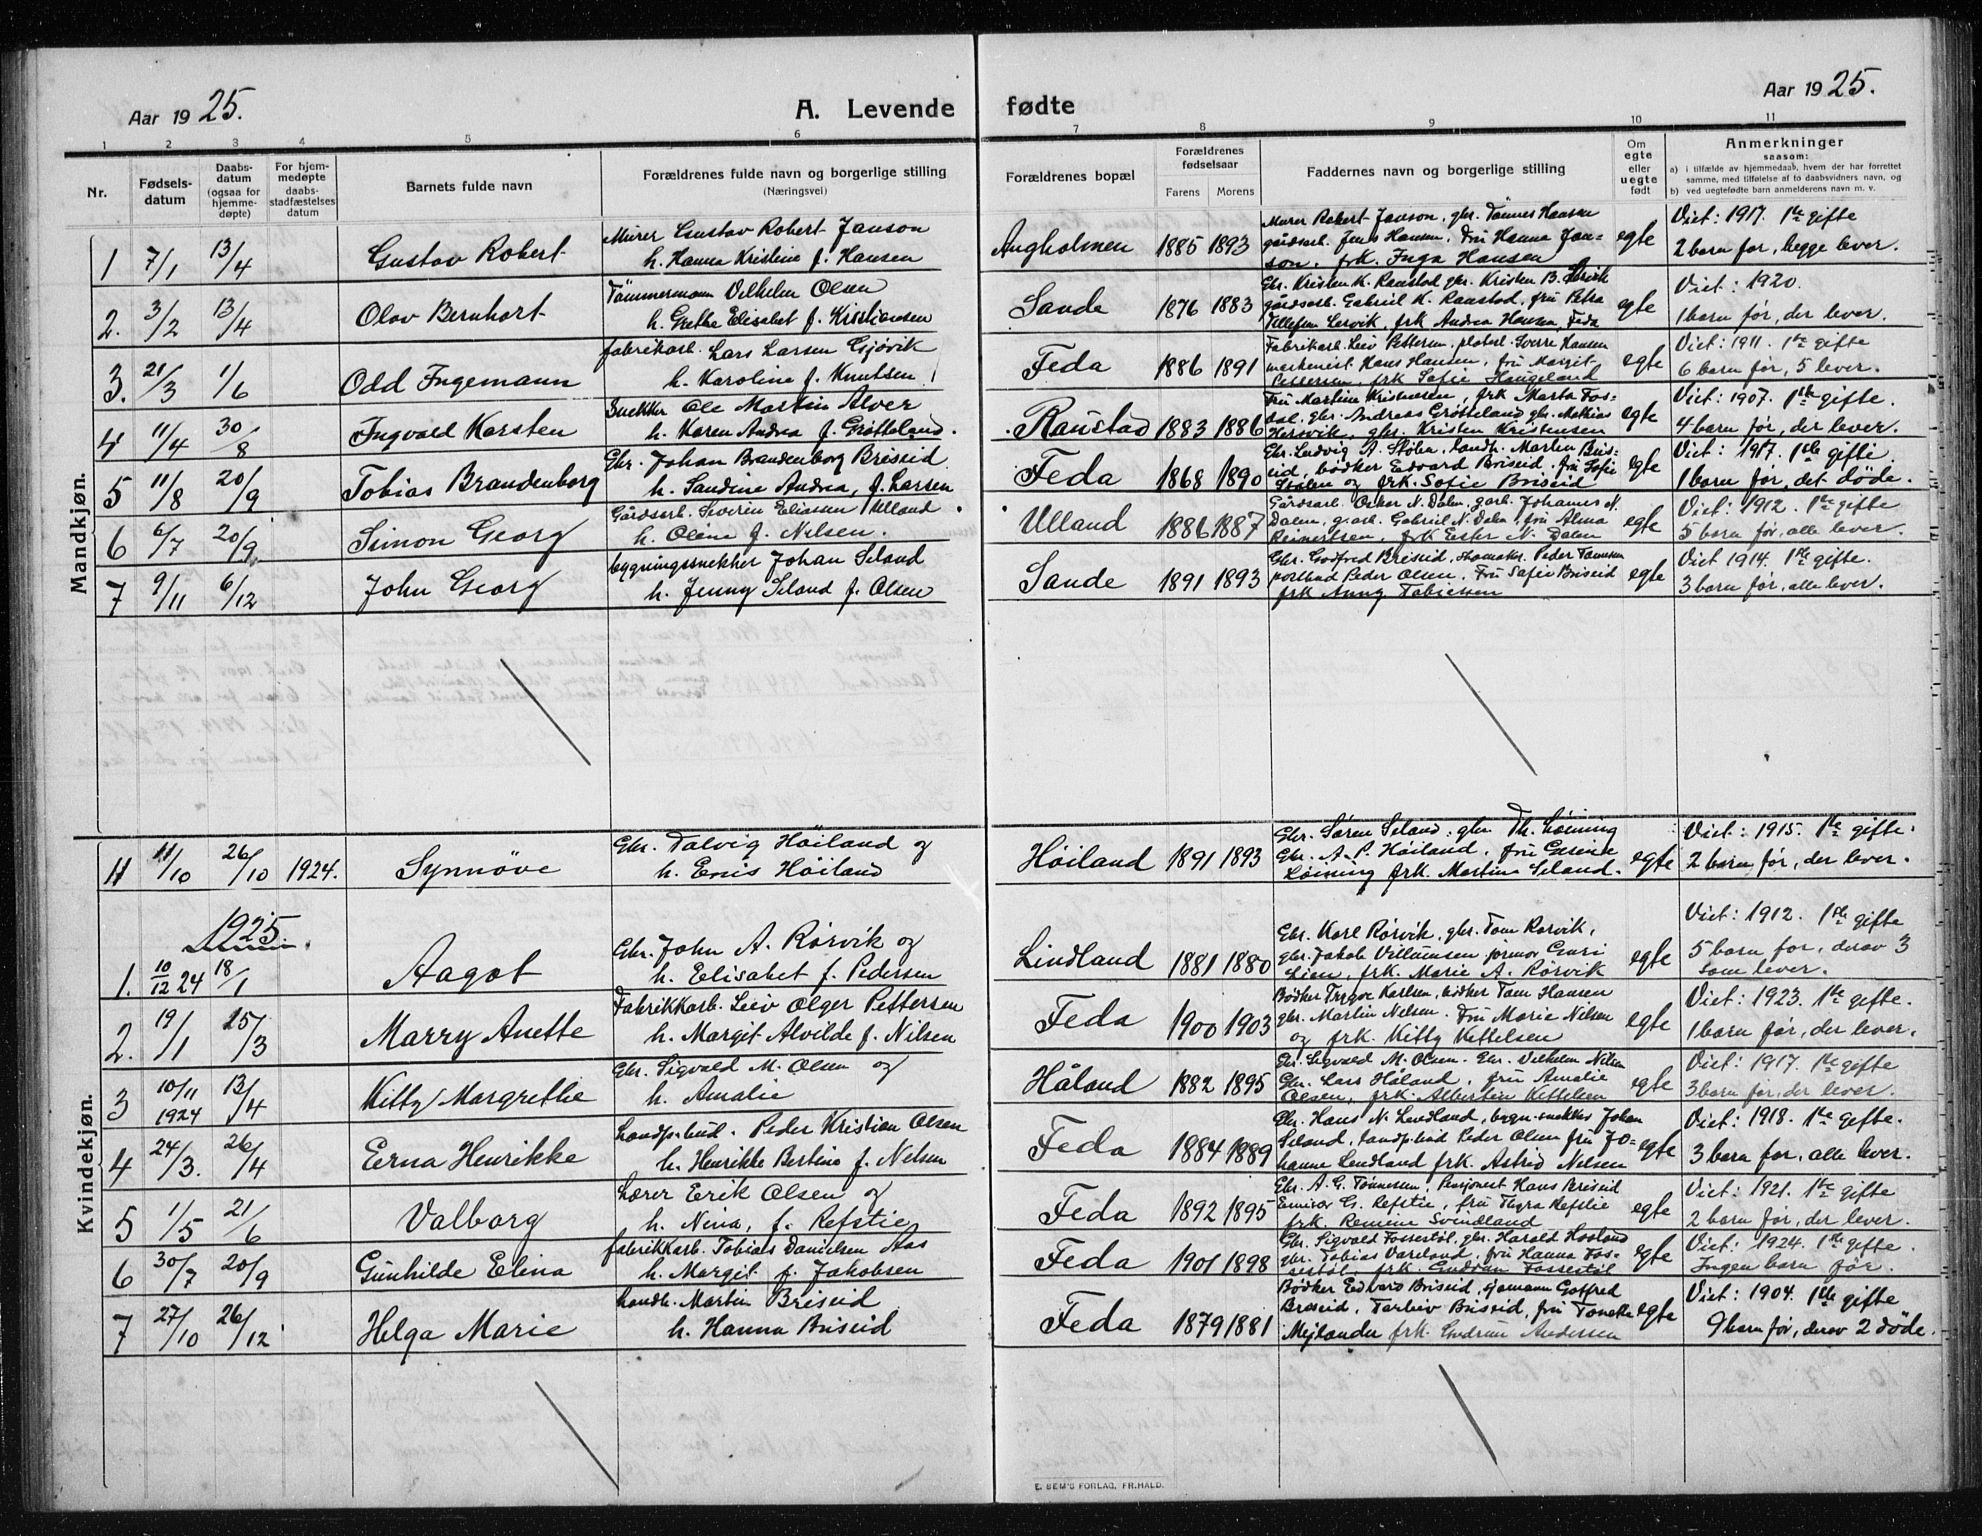 Aar 1925.
A. Levende fødte
Aar 1925.
1 2 3 4 5 6 7 8 9 10 11
Nr.
Fødsels-
datum
Daabs-
datum
(ogsaa for
hjemme-
døpte)
For hjem-
medøpte
daabs-
stadfæstelses
datum
Barnets fulde navn
Forældrenes fulde navn og borgerlige stilling
(Næringsvei)
Forældrenes bopæl
Forældrenes
fødselsaar
Farens Morens
Faddernes navn og borgerlige stilling
Om
egte
eller
uegte
født
Anmerkninger
saasom:
a) i tilfælde av hjemmedaab, hvem der har forrettet
samme, med tilføielse af to daabsvidners navn, og
b) ved uegtefødte barn anmelderens navn m. v.
Mandkjøn.
1 7/1 13/4 Gustav Robert
Murer Gustav Robert Janson
h. Hanna Kristine f. Hansen
Angholmen 1885 1893
Murer Robert Janson, gbr. Tønnes Hansen
gårdsarb. Jens Hansen, Fru Hanna Jan-
son, frk. Inga Hansen
egte
Viet: 1917. 1ste gifte
2 barn før, begge lever.
2. 3/2 13/4 Olav Bernhart
Tømmermann Vilhelm Olsen
h. Grethe Elisabet f. Kristiansen
Sande 1876 1883
Gbr. Kristen K. Raustad gbr. Kristen B.
gårdsarb. Gabriel K. Raustad, fru Petra
Tillefsen Lervik, frk Andrea Hansen, Feda
egte
Viet: 1920.
1 barn før, der lever.
3. 21/3 1/6 Odd Ingemann
fabrikarb. Lars Larsen Gjøvik
h. Karoline f. Knutsen
Feda 1886 1891
Fabrikarb. Leiv Pettersen, Sverre Hansen
maskinist Hans Hansen, fru Margit
Pettersen, frk Sofie Haugeland
egte
Viet: 1911. 1ste gifte
6 barn før, 5 lever.
4 11/4 30/8 Ingvald Karsten
Snekker Ole Martin Alver
h. Karen Andrea f. Grøtteland.
Raustad 1883 1886
Fru Martine Kristensen, frk Marta Fos-
dal, gbr. Andreas Grøtteland gbr. Mathias
Hersvik, gbr. Kristen Kristensen
egte
Viet: 1907. 1ste gifte.
4 barn før, der lever.
5 11/8 20/9 Tobias Brandenborg
Gbr. Johan Brandenborg Briseid
h. Sandine Andrea, f. Larsen
Feda 1868 1890
Gbr. Ludvig A. Stølen, Landh. Martin Bris-
eid, bødker Edvard Briseid, fru Sofie
Stølen og frk. Sofie Briseid
egte
Viet: 1917. 1ste gifte.
1 barn før, det døde.
6 6/7 20/9 Simon Georg
Gårdsarb. Severin Eliassen Ulland
h. Oline f. Nilsen.
Ulland 1886 1887
Gårdsarb. Oskar N. Dalen, garb. Johannes N.
Dalen, g.arb. Gabriel N. Dalen, fru Alma
Reinertsen, frk Ester N. Dalen
egte
Viet: 1912. 1ste gifte
5 barn før, alle lever.
7 9/11 6/12 John Georg
bygningssnekker Johan Seland
h. Jenny Seland f. Olsen
Sande 1891 1893
Gbr. Godfred Briseid, skomaker Peder Tønnesen
postbud Peder Olsen, Fru Sofie Briseid
frk Anny Tobiassen
egte
Viet 1914. 1ste gifte.
3 barn før, alle lever.
Kvindekjøn.
11 11/10 26/10 1924. Synnøve
Gbr. Dalvig Høiland og
h. Enis Høiland
Høiland 1891 1893
Gbr. Søren Seland, gbr. Th. Løining
Gbr. A. P. Høiland, fru Gesine
Løining frk. Martine Seland.
egte
Viet: 1915. 1ste gifte.
2 barn før, der lever.
1925.
1. 10/12 24 18/1 Aagot
Gbr. John A. Rørvik og
h. Elisabet f. Pedersen
Lindland 1881 1880
Gbr. Karl Rørvik, gbr. Tom Rørvik,
gbr. Jakob Villumsen, jormor Guri
Lien, frk. Marie A. Rørvik
egte
Viet: 1912. 1ste gifte
5 barn før, derav 3
som lever.
2. 19/1 25/3 Marry Anette
Fabrikkarb. Leiv Olger Pettersen
h. Margit Alvilde f. Nilsen
Feda 1900 1903
Bødker Trygve Karlsen, bødker Tom Hansen
gbr. Martin Nilsen. Fru Marie Nilsen
og frk. Kitty Kittelsen
egte
Viet: 1923. 1ste gifte.
1 barn før, der lever.
3 10/11 1924 13/4 Kitty Margrethe
Gbr. Sigvald M. Olsen og
h. Amalie
Håland 1882 1895
Gbr. Sigvald M. Olsen. Gbr. Vilhelm Nilsen
Gbr. Lars Håland, fru Amalie
Olsen, frk. Albertin Kittelsen
egte
Viet: 1917. 1ste gifte
3 barn før, der lever.
4 24/3. 26/4 Erna Henrikke
Landp.bud. Peder Kristian Olsen
h. Henrikke Bertine f. Nelsen
Feda 1884 1889
Gbr. Hans N. Lindland, bygn.snekker Johan
Seland, Landp.bud Peder Olsen fru Jo-
hanne Lindland frk. Astrid Nelsen
egte
Viet: 1918. 1ste gifte.
3 barn før, alle lever.
5 1/5 21/6 Valborg
Lærer Erik Olsen og
h. Nina, f. Refstie
Feda 1892 1895
Gbr. A. G. Tønnesen, Pensjonist Hans Briseid
Emisær G. Refstie, fru Thyra Refstie
frk. Remine Svindland
egte
Viet: 1921. 1ste gifte
2 barn før, der lever.
6 30/7 20/9 Gunhilde Elina
fabrikkarb. Tobias Danielsen Aas
h. Margit f. Jakobsen
Feda 1901 1898
Gbr. Sigvald Fossestøl, gbr. Harald Haaland
gbr. Tobias Vareland, fru Hanna Fos-
sestøl, frk. Gudrun Fossestøl
egte
Viet: 1924. 1ste gifte.
Ingen barn før.
7 27/10 26/12 Helga Marie
Landh. Martin Briseid
h. Hanna Briseid
Feda 1879 1881
Bødker Edvard Briseid, sjømann Gotfred
Briseid, Torleiv Briseid, fru Tonette
Mejlander frk. Gudrun Andersen
egte
Viet: 1904. 1ste gifte
9 barn før, derav 2 døde.
E. SEM'S FORLAG, FR.HALD.